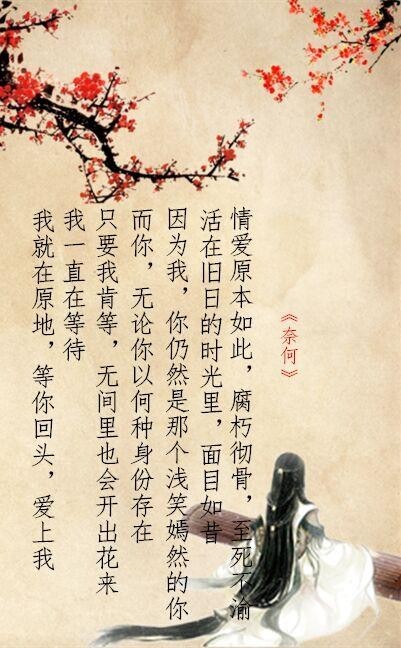 《奈何》
情爱原本如此，腐朽彻骨，至死不渝
活在旧日的时光里，面目如昔
因为我，你仍然是那个浅笑嫣然的你
而你，无论你以何种身份存在
只要我肯等，无间里也会开出花来
我一直在等待
我就在原地，等你回头，爱上我